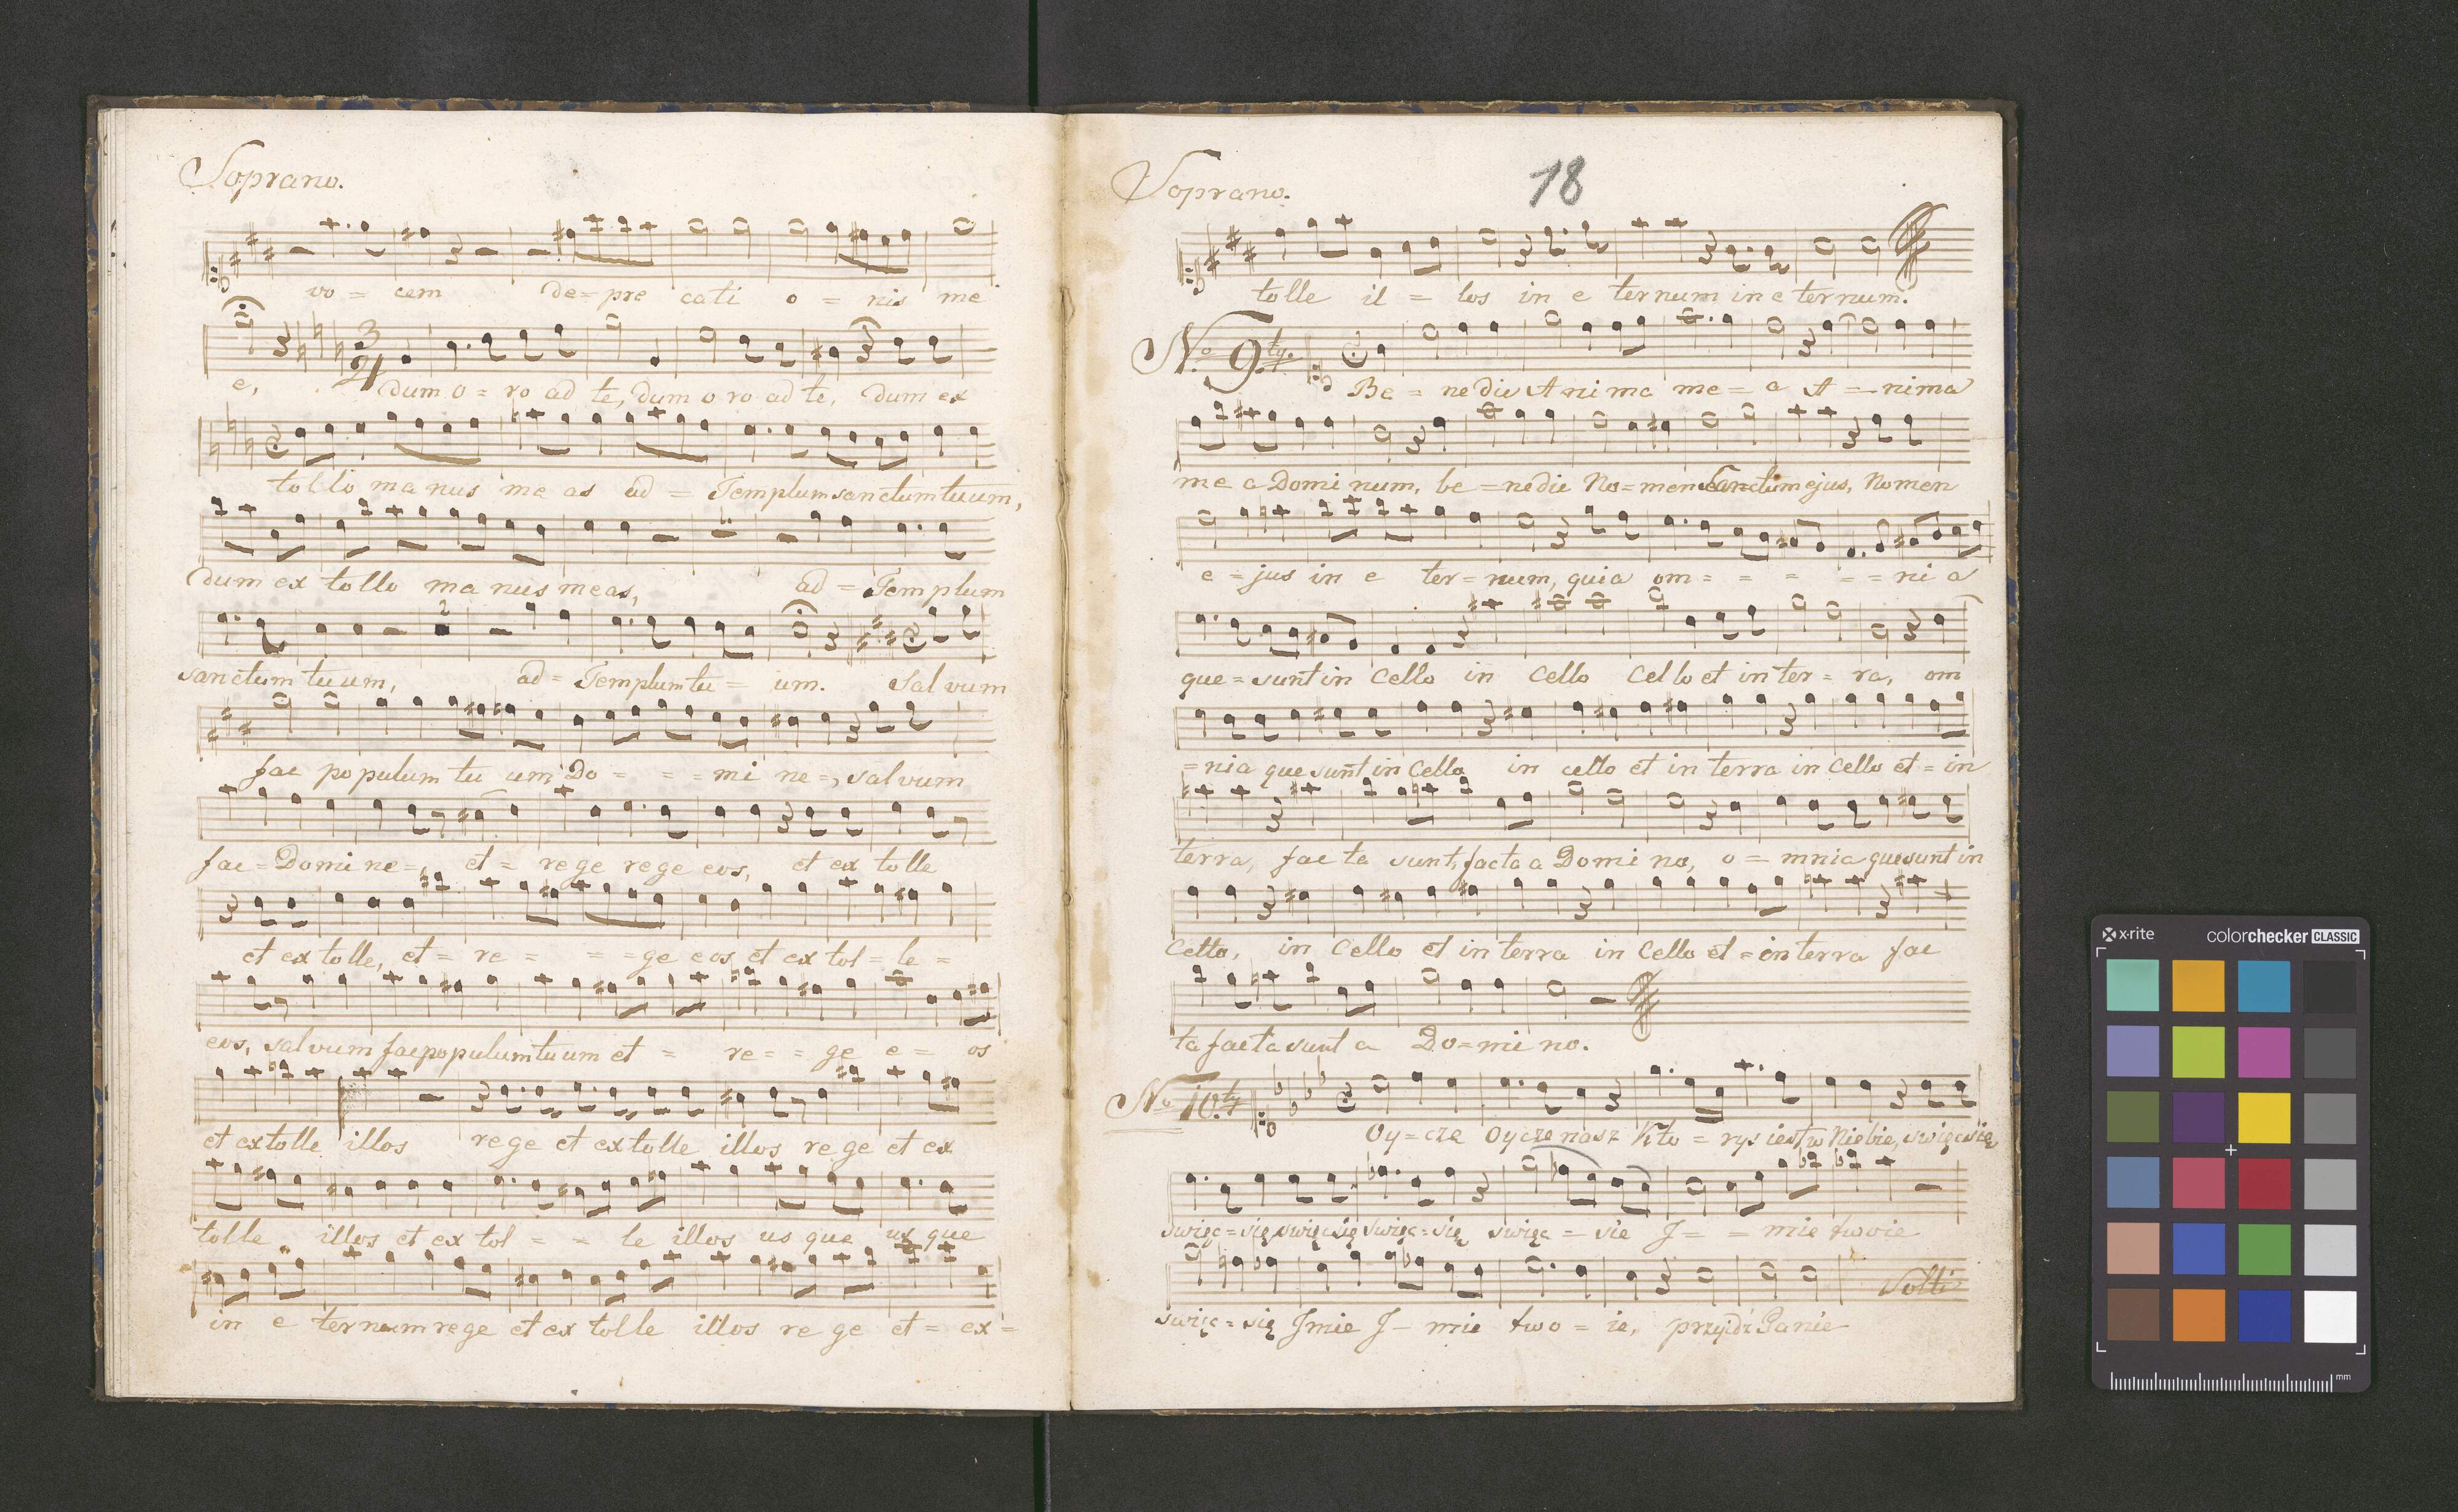 Soprano.
vo = cem de = pre cati o = nis me
3
4
e, dum o = ro ad te, dum o ro ad te, dum ex
tollo ma nus me as ad = Templum sanctum tuum,
dum ex tollo ma nus meas, ad = Templum
2
sanctum tuum, ad = Templum tu = um. Salvum
fac populum tu um Do = = = mi ne =, salvum
fac = Domi ne =, et = rege rege eos, et ex tolle
et ex tolle, et = re = = = ge eos et ex tol = le =
eos, salvum fac populum tuum et = re = = ge e = os
et extolle illos rege et extolle illos rege et ex
tolle illos et ex tol = = le illos us que us que
in e ternum rege et ex tolle illos re ge et = ex =
Soprano.
18
tolle il = los in e ternum in e ternum.
No. 9ty.
Be = nedic Anima me = a A = nima
me a Domi num, be = nedic No = men Sanctum ejus, Nomen
e = jus in e ter = num, quia om = = = = = ni a
que = sunt in Cello in Cello Cello et in ter = ra, om
= nia que sunt in Cello in cello et in terra in Cello et = in
terra, fac ta sunt, facta a Domi no, o = mnia que sunt in
Cello, in Cello et in terra in Cello et = in terra fac
ta facta sunt a Do = mi no.
No. 10ty
Oy = cze Oycze nasz Kto = rys iest w Niebie, swięc się
swięc = się swięc się swięc = się swięc = sie J = = mie twoie
swięc = się Jmie J = mie two = ie, przyidź Panie
Volti
x·rite colorchecker CLASSIC
mm